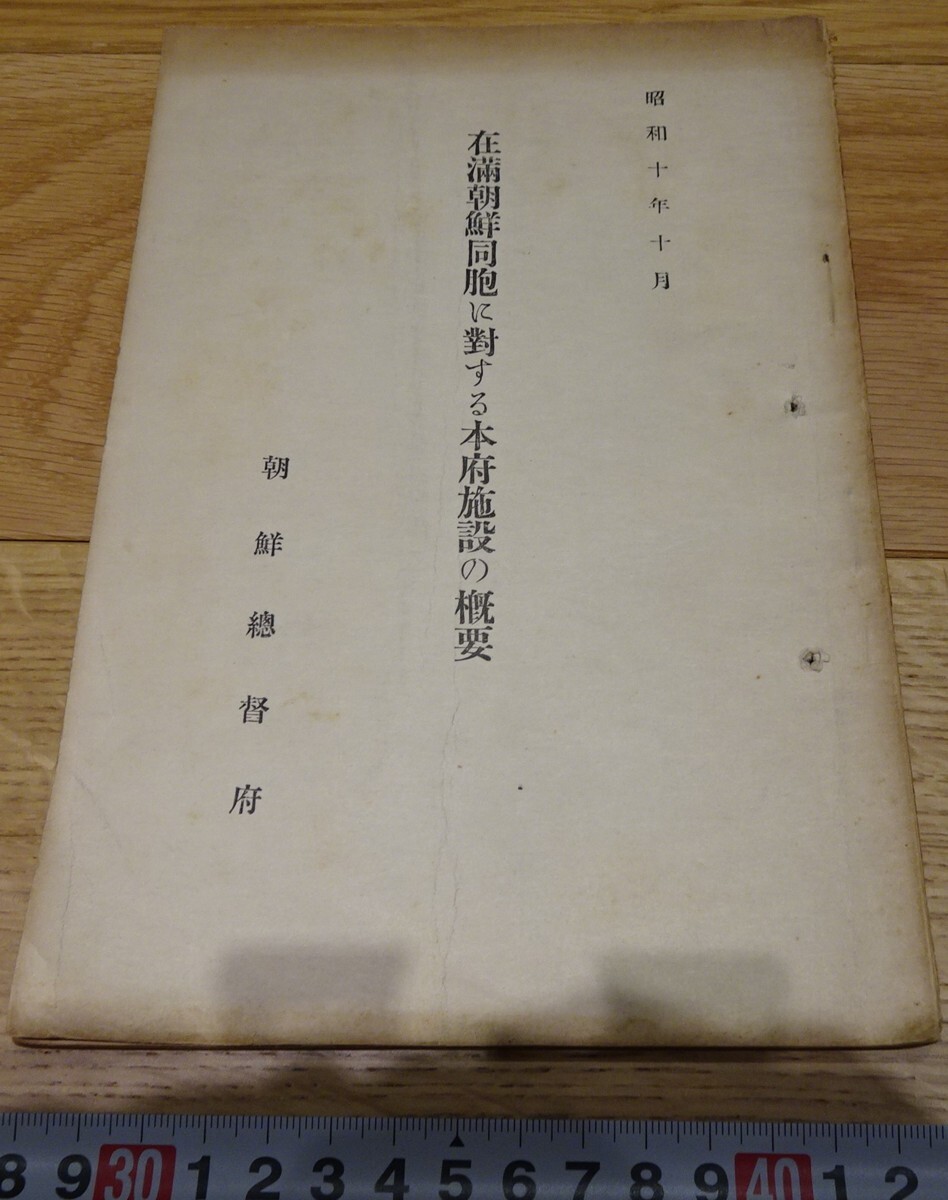 昭和十年十月
在滿朝鮮同胞に對する本府施設の概要
朝鮮總督府
8 9 30 1 2 3 4 5 6 7 8 9 40 1 2